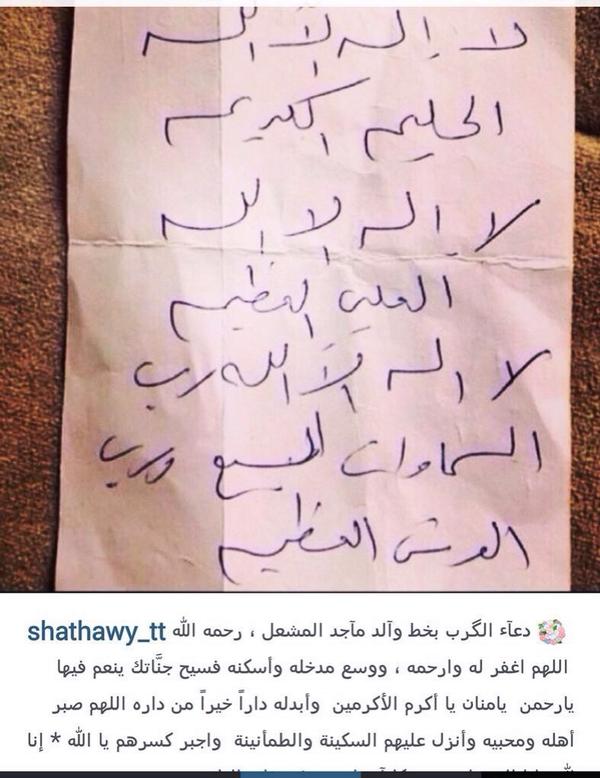 لا إله إلا الله
الحليم الكريم
لا إله إلا الله
العلي العظيم
لا إله إلا الله رب
السماوات السبع ورب
العرش العظيم
shathawy_tt 💐 دعآء الگرب بخط وآلد مآجد المشعل ، رحمه الله
اللهم اغفر له وارحمه ، ووسع مدخله وأسكنه فسيح جنَّاتك ينعم فيها
يارحمن يامنان يا أكرم الأكرمين وأبدله داراً خيراً من داره اللهم صبر
أهله ومحبيه وأنزل عليهم السكينة والطمأنينة واجبر كسرهم يا الله * إنا